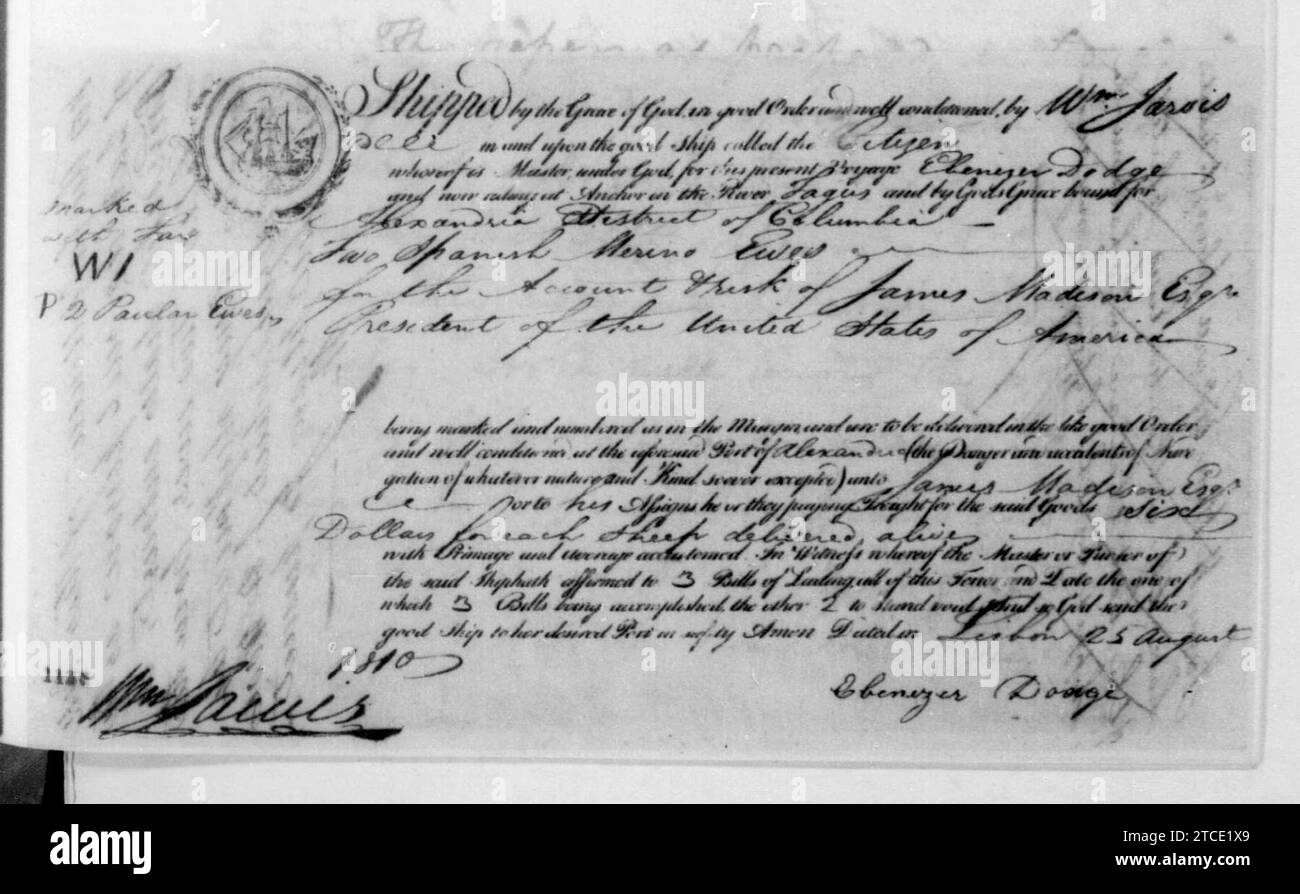 Shipped by the Grace of God, in good Order and well conditioned, by Wm Jarvis
in and upon the good Ship called the Citizen
whereof is Master, under God, for this present Voyage Ebenezer Dodge
and now riding at Anchor in the River Tagus and by Gods Grace bound for
Alexandria District of Columbia
Two Spanish Merino Ewes
for the Account & risk of James Madison Esqr
President of the United States of America
marked
with Tar
WI
P 2 Paular Ewes
being marked and numbered as in the Margin, and are to be delivered in the like good Order
and well conditioned at the aforesaid Port of Alexandria (the Danger and accidents of Navi
gation of whatever nature and Kind soever excepted) unto James Madison Esqr
or to his Assigns he or they paying Freight for the said Goods Six
Dollars for each Sheep delivered alive
with Primage and average accustomed. In Witness whereof the Master or Purser of
the said Ship hath affirmed to 3 Bills of Lading all of this Tenor and Date the one of
which 3 Bills being accomplished, the other 2 to stand void And so God send the
good Ship to her desired Port in safety Amen Dated in Lisbon 25 August
1810
Wm Jarvis
Ebenezer Dodge
alamy
Image ID: 2TCE1X9
www.alamy.com